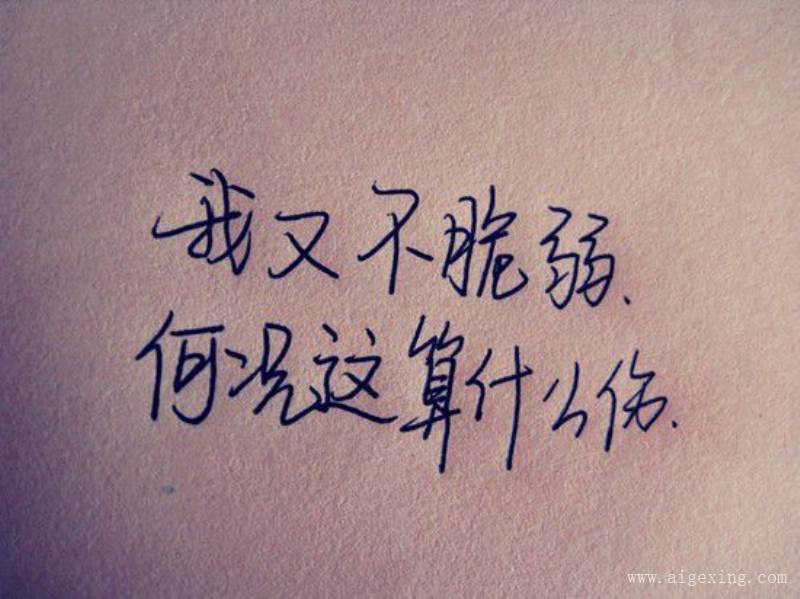 我又不脆弱、
何况这算什么伤、
www.aigexing.com